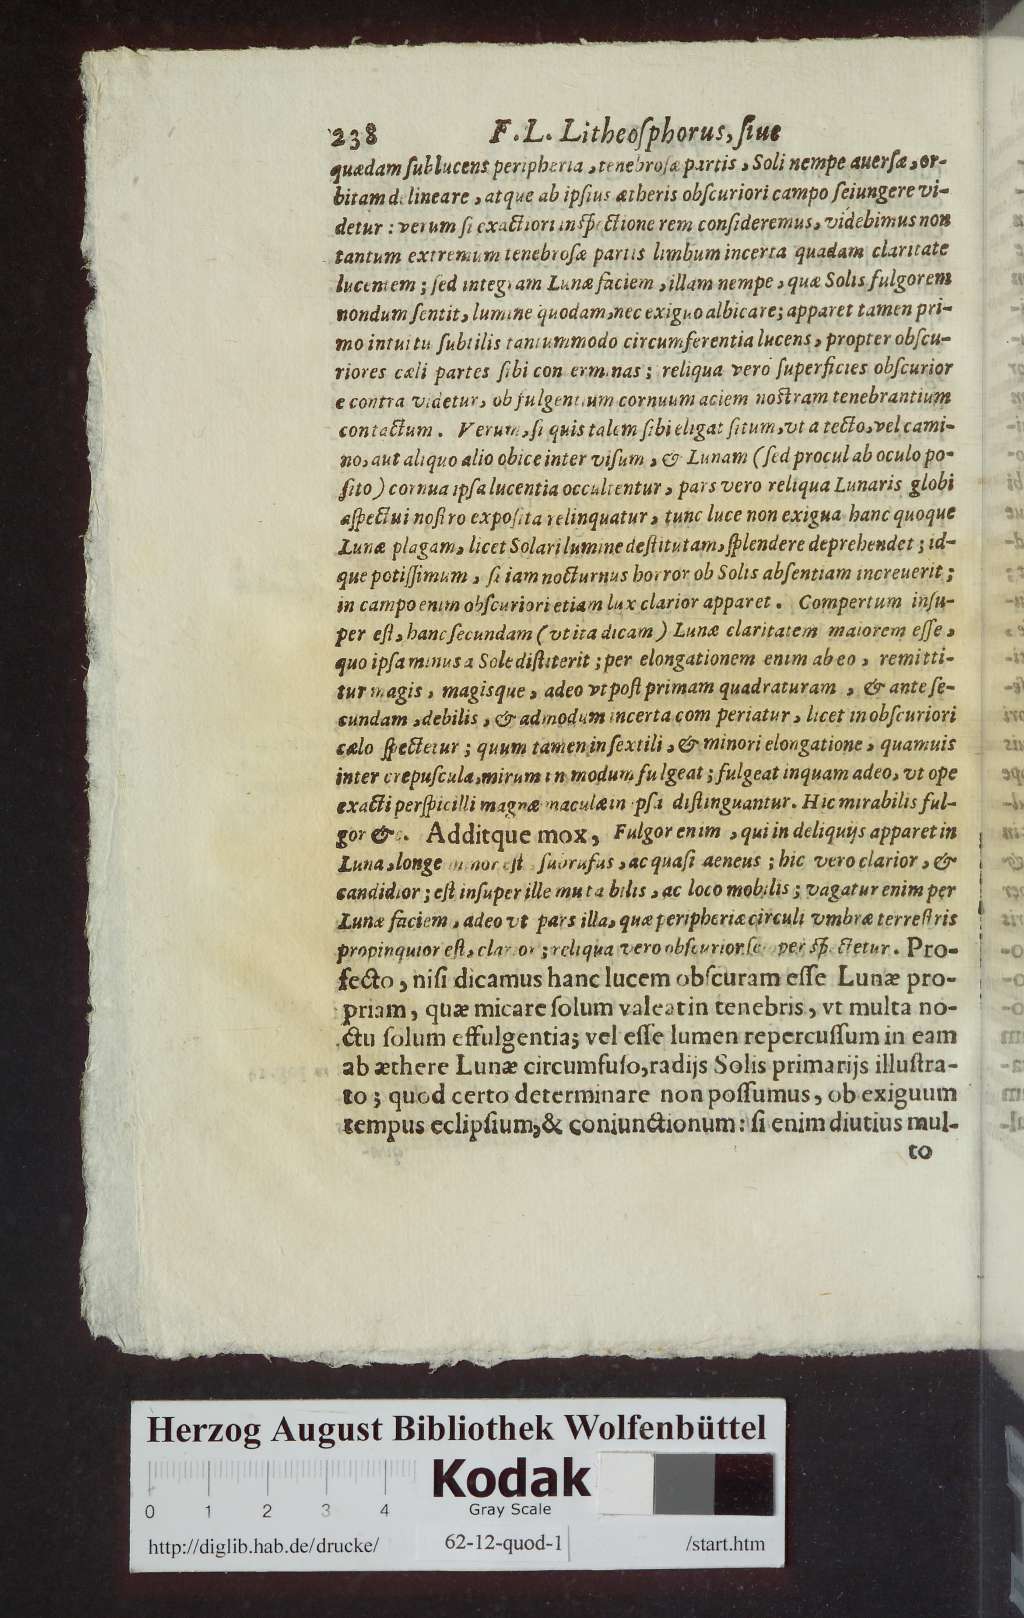 238 F. L. Litheoſphorus, ſiue
quædam ſublucens peripheria, tenebroſæ partis, Soli nempe auerſæ, or-
bitam delineare, atque ab ipſius ætheris obſcuriori campo ſeiungere vi-
detur: verum ſi exactiori inſpectione rem conſideremus, videbimus non
tantum extremum tenebroſæ partis limbum incerta quadam claritate
lucentem; ſed integram Lunæ faciem, illam nempe, quæ Solis fulgorem
nondum ſentit, lumine quodam, nec exiguo albicare; apparet tamen pri-
mo intuitu ſubtilis tantummodo circumferentia lucens, propter obſcu-
riores cæli partes ſibi conterminas; reliqua vero ſuperficies obſcurior
e contra videtur, ob fulgentium cornuum aciem noſtram tenebrantium
contactum. Verum, ſi quis talem ſibi eligat ſitum, vt a tecto, vel cami-
no, aut aliquo alio obice inter viſum, & Lunam (ſed procul ab oculo po-
ſito) cornua ipſa lucentia occultentur, pars vero reliqua Lunaris globi
aſpectui noſtro expoſita relinquatur, tunc luce non exigua hanc quoque
Lunæ plagam, licet Solari lumine deſtitutam, ſplendere deprehendet; id-
que potiſſimum, ſi iam nocturnus horror ob Solis abſentiam increuerit;
in campo enim obſcuriori etiam lux clarior apparet. Compertum inſu-
per eſt, hanc ſecundam (vt ita dicam) Lunæ claritatem maiorem eſſe,
quo ipſa minus a Sole diſtiterit; per elongationem enim ab eo, remitti-
tur magis, magisque, adeo vt poſt primam quadraturam, & ante ſe-
cundam, debilis, & admodum incerta comperiatur, licet in obſcuriori
cælo ſpectetur; quum tamen in ſextili, & minori elongatione, quamuis
inter crepuſcula, mirum in modum fulgeat; fulgeat inquam adeo, vt ope
exacti perſpicilli magnæ maculæ in ipſa diſtinguantur. Hic mirabilis ful-
gor &c. Additque mox, Fulgor enim, qui in deliquijs apparet in
Luna, longe minor eſt ſubrufus, ac quaſi aeneus; hic vero clarior, &
candidior; eſt inſuper ille mutabilis, ac loco mobilis; vagatur enim per
Lunæ faciem, adeo vt pars illa, quæ peripheriæ circuli vmbræ terreſtris
propinquior eſt, clarior; reliqua vero obſcurior ſemper ſpectetur. Pro-
fecto, niſi dicamus hanc lucem obſcuram eſſe Lunæ pro-
priam, quæ micare ſolum valeat in tenebris, vt multa no-
ctu ſolum effulgentia; vel eſſe lumen repercuſſum in eam
ab æthere Lunæ circumfuſo, radijs Solis primarijs illuſtra-
to; quod certo determinare non poſſumus, ob exiguum
tempus eclipſium, & coniunctionum: ſi enim diutius mul-
to
Herzog August Bibliothek Wolfenbüttel
Kodak
Gray Scale
0 1 2 3 4
http://diglib.hab.de/drucke/ 62-12-quod-1 /start.htm